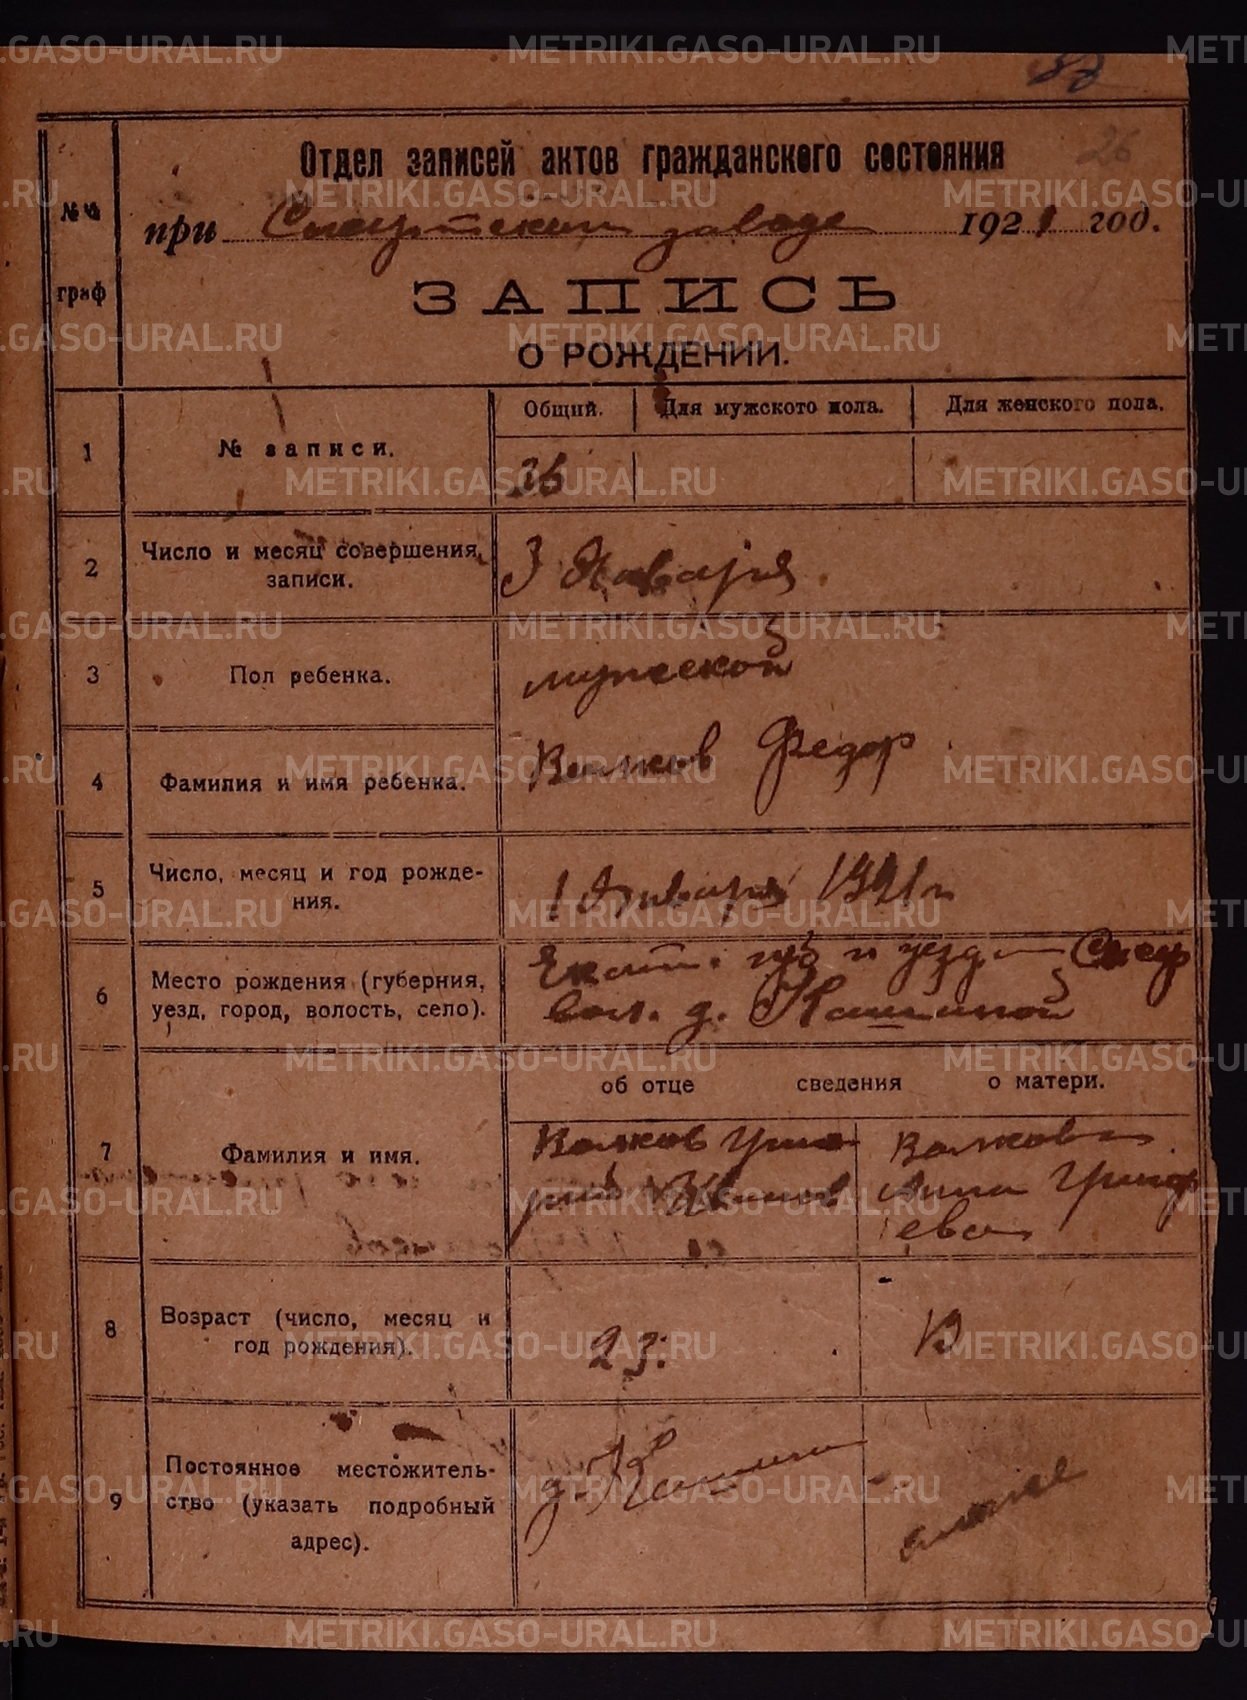 32
26
Отдел записей актов гражданского состояния
№№ граф
при Сысертском заводе 1921 год.
ЗАПИСЬ
О РОЖДЕНИИ.
Общий. Для мужского пола. Для женского пола.
1 № записи. 36
2 Число и месяц совершения записи. 3 Января
3 Пол ребенка. мужской
4 Фамилия и имя ребенка. Волков Федор
5 Число, месяц и год рождения. 1 Января 1921 г
6 Место рождения (губерния, Екат. губ и уезда Сысер
уезд, город, волость, село). вол. д. Кашиной
об отце сведения о матери.
7 Фамилия и имя. Волков Григо Волкова
рий Иванов Анна Григор
ева
8 Возраст (число, месяц и
год рождения). 23.
9 Постоянное местожитель-
ство (указать подробный д. Кашина
адрес).
METRIKI.GASO-URAL.RU